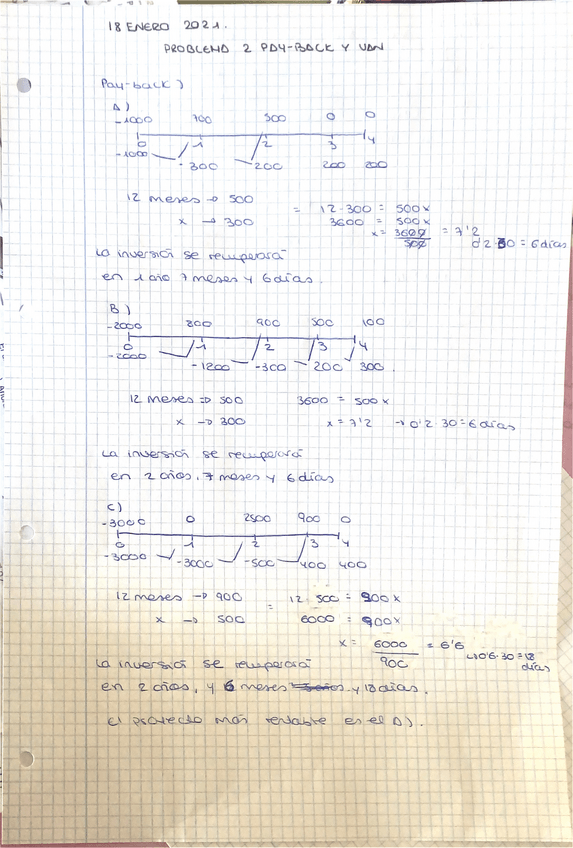 18 ENERO 2021.
PROBLEMA 2 PAY-BACK Y VAN
Pay-back)
A)
-1000 700 500 0 0
0 1 2 3 4
-1000 -300 200 200 200
12 meses → 500 = 12·300 = 500x
x → 300 3600 = 500x
x = 3600/500 = 7'2
0'2·30 = 6 días
La inversión se recuperará
en 1 año 7 meses y 6 días.
B)
-2000 800 900 500 100
0 1 2 3 4
-2000 -1200 -300 200 300.
12 meses ⇒ 500 3600 = 500x
x → 300 x = 7'2 → 0'2·30 = 6 días
La inversión se recuperará
en 2 años, 7 meses y 6 días
C)
-3000 0 2500 900 0
0 1 2 3 4
-3000 -3000 -500 400 400
12 meses → 900 = 12·500 = 900x
x → 500 6000 = 900x
x = 6000/900 = 6'6
↳ 0'6·30 = 18 días
La inversión se recuperará
en 2 años, y 6 meses y 18 días.
El proyecto más rentable es el A).